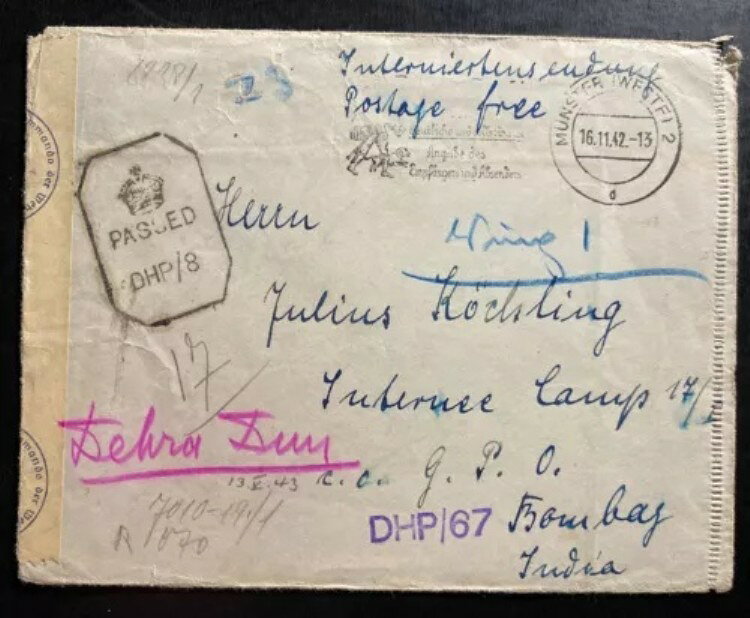 Interniertensendung
Postage free
MÜNSTER (WESTF) 2
16.11.42.-13
d
Angabe des
Empfängers und Absenders
PASSED
DHP/8
Herrn
Wing 1
Julius Köchling
17
Internee Camp 17/
Dehra Dun
13 V. 43
c.o. G. P. O.
DHP/67
Bombay
India